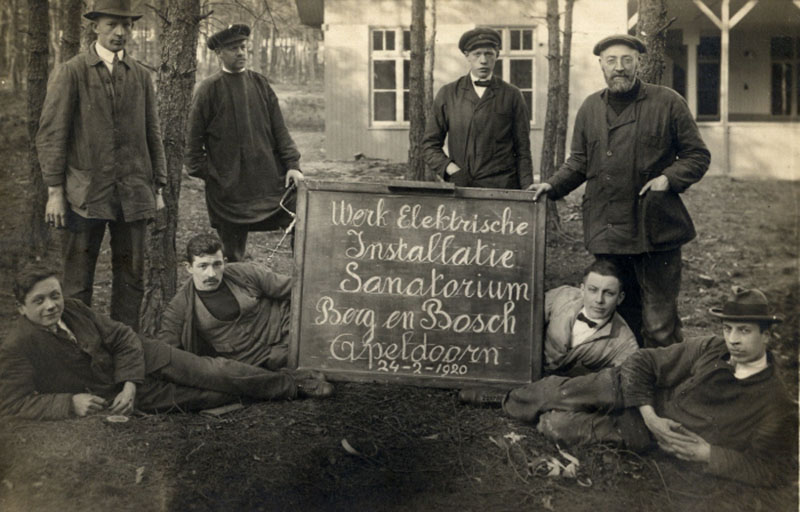 Werk Elektrische
Installatie
Sanatorium
Berg en Bosch
Apeldoorn
24-2-1920